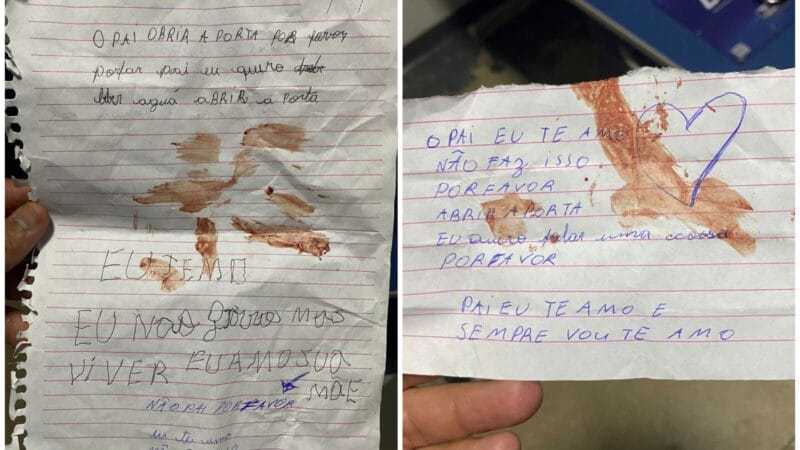 O PAI OBRIR A PORTA POR favor
pai eu quero
aguá ABRIR a PORTA
EU TEMO
EU NAO mas
VIVER EU AMO SUA
MÃE
NÃO PAI POR FAVOR
eu te amo
O PAI EU TE AMO
NÃO FAZ ISSO
POR FAVOR
ABRIR A PORTA
EU quero falar uma coisa
POR FAVOR
PAI EU TE AMO E
SEMPRE VOU TE AMO